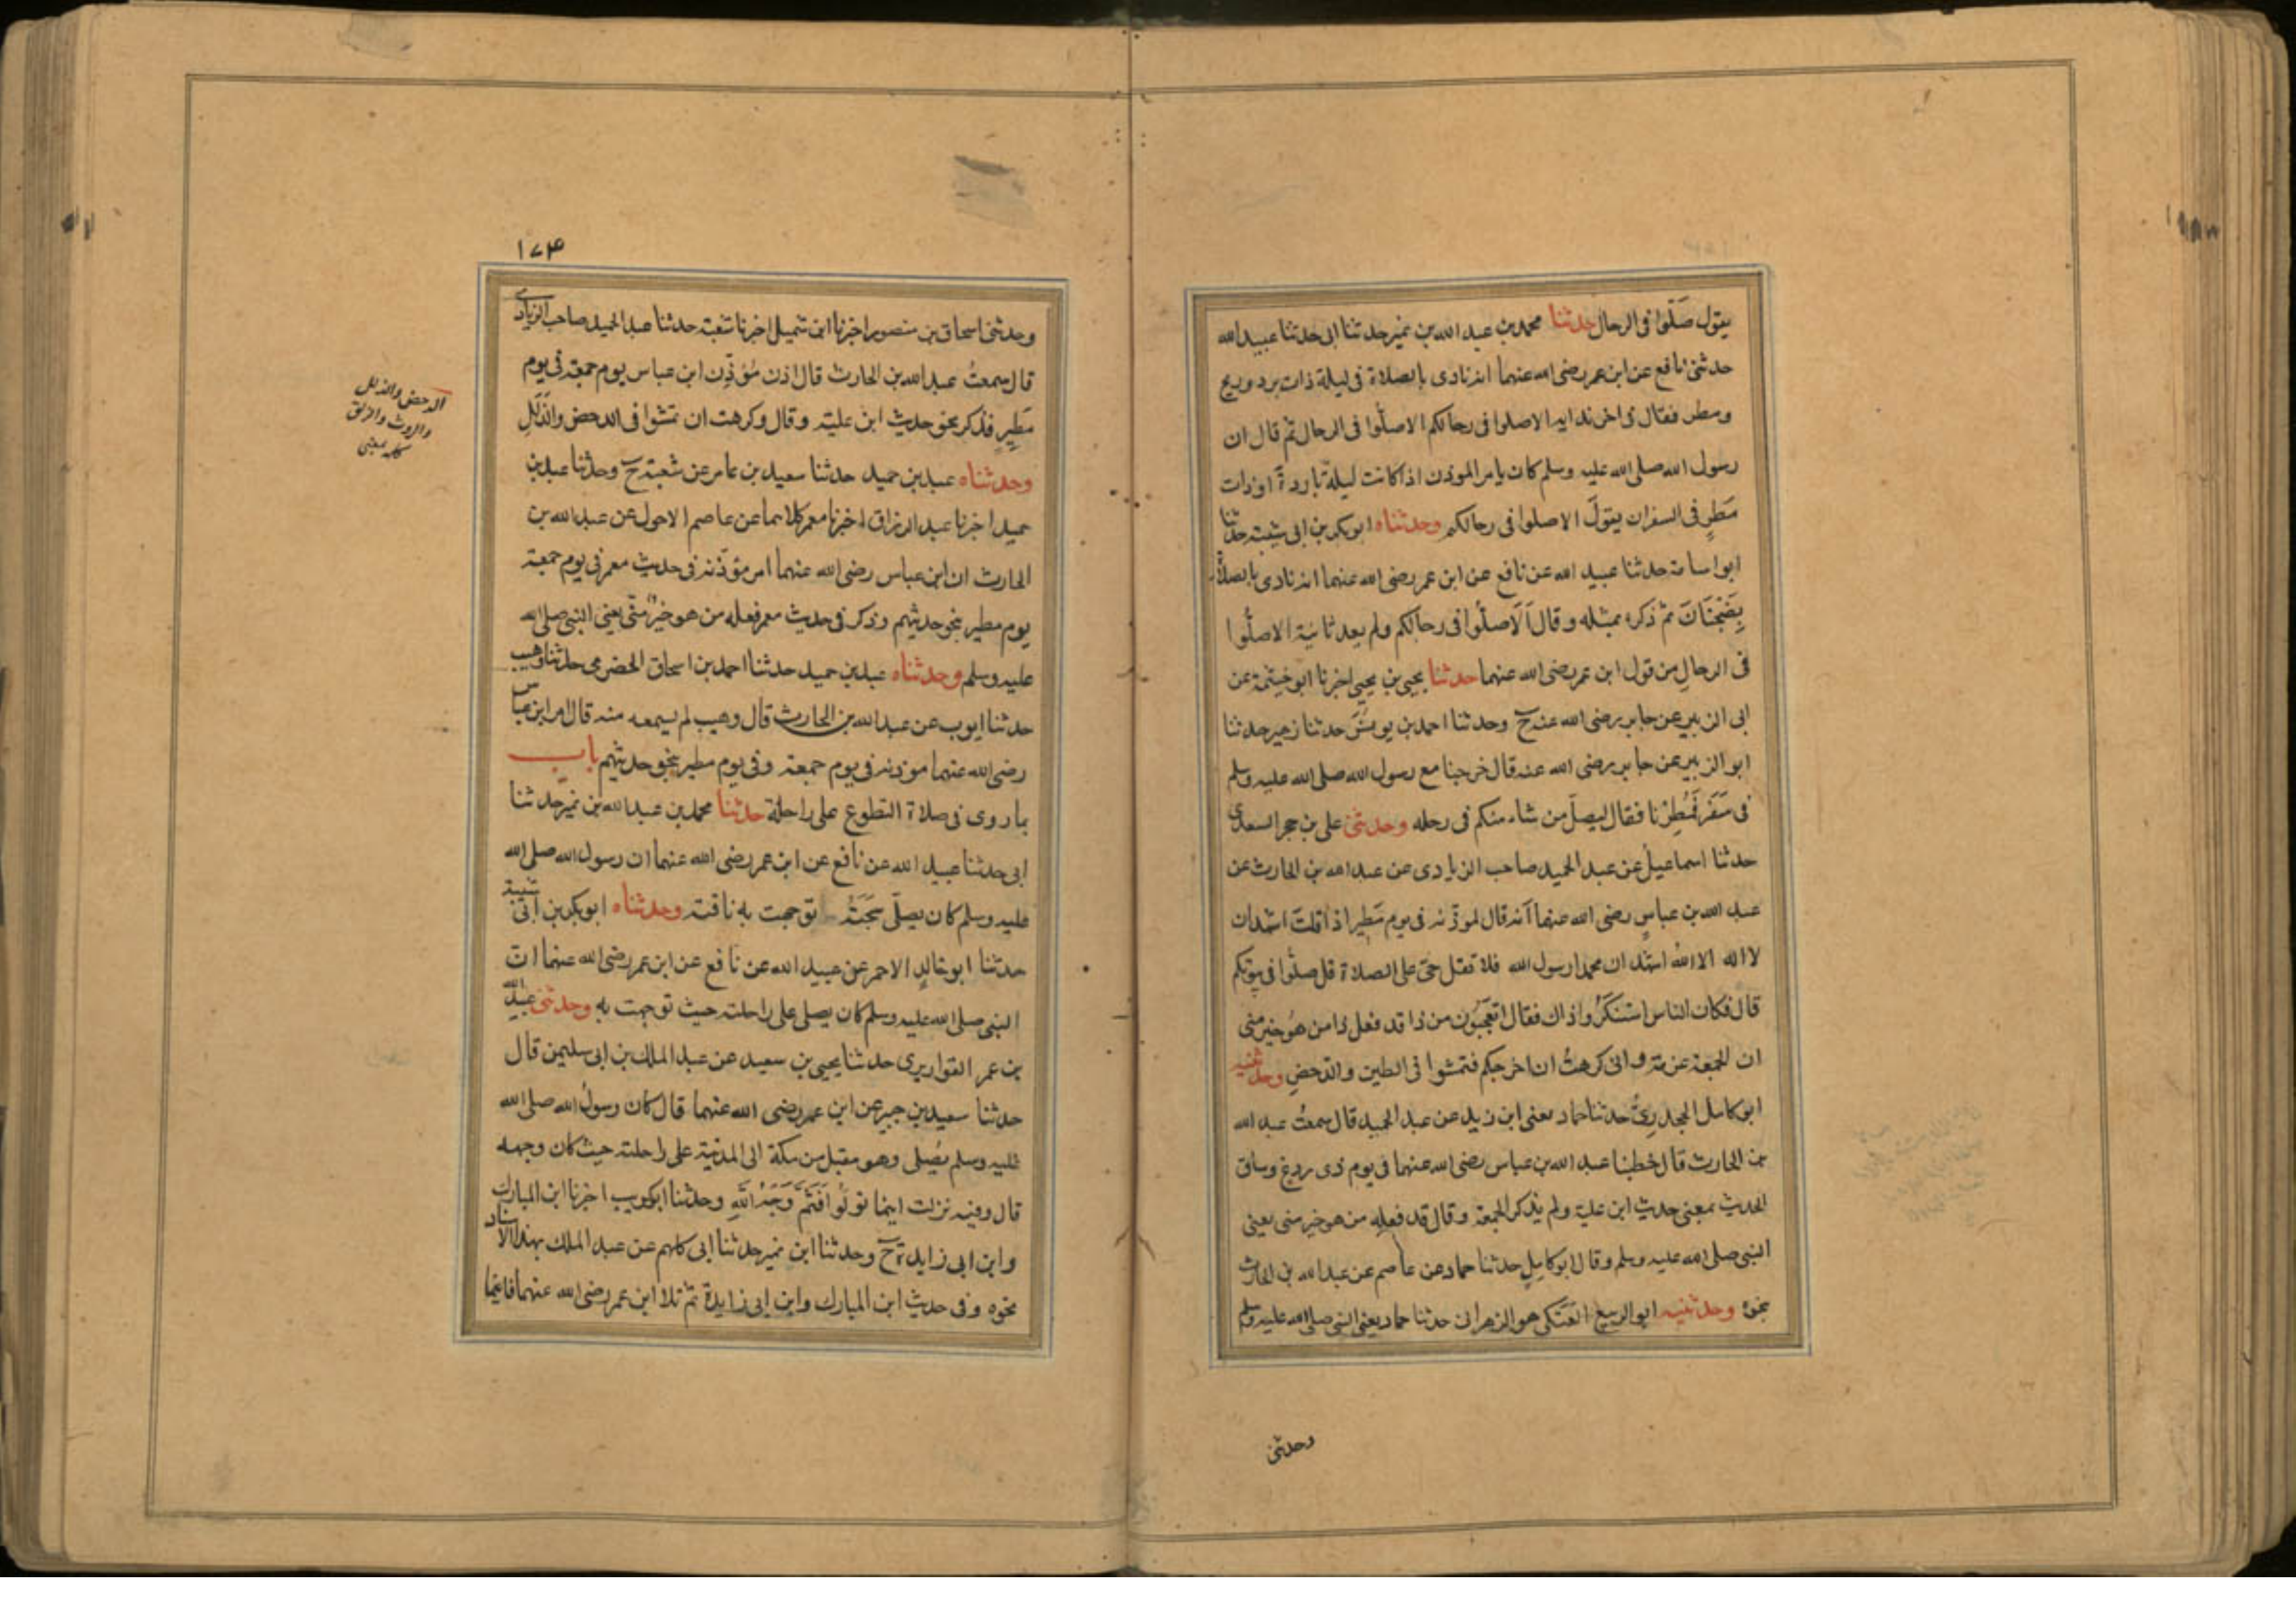 يقول صَلّوا فى الرحال حدثنا محمد بن عبد الله بن نمير حدثنا ابى حدثنا عبيد الله
حدثنى نافع عن ابن عمر رضى الله عنهما انه نادى بالصلاة فى ليلة ذات برد وريح
ومطر فقال فى اخر ندايه الا صلوا فى رحالكم الا صلّوا فى الرحال ثم قال ان
رسول الله صلى الله عليه وسلم كان يامر الموذن اذا كانت ليلة باردةً او ذات
مَطرٍ فى السفر ان يقولَ الا صلوا فى رحالكم وحدثناه ابو بكر بن ابى شيبة حدثنا
ابو اسامة حدثنا عبيد الله عن نافع عن ابن عمر رضى الله عنهما انه نادى بالصلاة
بِضَجْنَانَ ثم ذكره بمثله وقال اَلَا صلّوا فى رحالكم ولم يعد ثانية الا صلّوا
فى الرحالِ من قول ابن عمر رضى الله عنهما حدثنا يحيى بن يحيى اخبرنا ابو خيثمة عن
ابى الزبير عن جابر رضى الله عنه ح وحدثنا احمد بن يونس حدثنا زهير حدثنا
ابو الزبير عن جابر رضى الله عنه قال خرجنا مع رسول الله صلى الله عليه وسلم
فى سَفَر فَمُطِرْنا فقال ليصلّ من شاء منكم فى رحله وحدثنى على بن حجر السعدى
حدثنا اسماعيلُ عن عبد الحميد صاحب الزيادى عن عبد الله بن الحارث عن
عبد الله بن عباسٍ رضى الله عنهما اَنه قال لموذّنه فى يوم مَطِير اذا قلتَ اشهد ان
لا اله الا اللهُ اشهد ان محمدا رسول الله فلا تقل حىّ على الصلاة قل صلّوا فى بيوتكم
قال فكان الناس استنكَرُوا ذاك فقال اتعجَبُون من ذا قد فعل ذا من هُو خير منى
ان الجمعة عزمة وانى كرهتُ ان اخرجكم فتمشوا فى الطين والدحضِ وحدثنيه
ابو كامل الجحدرِىُّ حدثنا حماد يعنى ابن زيد عن عبد الحميد قال سمعتُ عبد الله
بن الحارث قال خطبنا عبد الله بن عباس رضى الله عنهما فى يوم ذى ردغ وساق
الحديث بمعنى حديث ابن علية ولم يذكر الجمعة وقال قد فعله من هو خير منى يعنى
النبى صلى الله عليه وسلم وقال ابو كامِلٍ حدثنا حماد عن عاصم عن عبد الله بن الحارث
بنحوه وحدثنيه ابو الربيع العَتَكى هو الزهرانى حدثنا حماد يعنى النبى صلى الله عليه وسلم
وحدثنى
١٧٤
وحدثنى اسحاق بن منصور اخبرنا ابن شميل اخبرنا شعبة حدثنا عبد الحميد صاحب الزيادى
قال سمعتُ عبد الله بن الحارث قال اذن مُؤَذّن ابن عباس يوم جمعة فى يوم
مَطِيرٍ فذكر بنحو حديث ابن علية وقال وكرهت ان تمشوا فى الدحض والزَلَلِ
وحدثناه عبد بن حميد حدثنا سعيد بن عامر عن شعبة ح وحدثنا عبد بن
حميد اخبرنا عبد الرزاق اخبرنا معمر كلاهما عن عاصم الاحول عن عبد الله بن
الحارث ان ابن عباس رضى الله عنهما امر مؤذّنه فى حديث معمر فى يوم جمعة
يوم مطير بنحو حديثهم وذكر فى حديث معمر فعله من هو خيرٌ منّى يعنى النبى صلى الله
عليه وسلم وحدثناه عبد بن حميد حدثنا احمد بن اسحاق الحضرمى حدثنا وهيب
حدثنا ايوب عن عبد الله بن الحارث قال وهيب لم يسمعه منه قال امر ابن عباس
رضى الله عنهما موذنه فى يوم جمعة وفى يوم مطير بنحو حديثهم باب
ما روى فى صلاة التطوع على راحلة حدثنا محمد بن عبد الله بن نمير حدثنا
ابى حدثنا عبيد الله عن نافع عن ابن عمر رضى الله عنهما ان رسول الله صلى الله
عليه وسلم كان يصلّى سُبْحَتَهُ توجهت به ناقته وحدثناه ابو بكر بن ابى شيبة
حدثنا ابو خالدٍ الاحمر عن عبيد الله عن نافع عن ابن عمر رضى الله عنهما ان
النبى صلى الله عليه وسلم كان يصلى على راحلته حيث توجهت به وحدثنى عبيد الله
بن عمر القواريرى حدثنا يحيى بن سعيد عن عبد الملك بن ابى سليمن قال
حدثنا سعيد بن جبير عن ابن عمر رضى الله عنهما قال كان رسولُ الله صلى الله
عليه وسلم يُصلى وهو مقبل من مكة الى المدينة على راحلته حيث كان وجهه
قال وفيه نزلت اينما تولّوا فَثَمَّ وَجْهُ اللَّهِ وحدثنا ابو كريب اخبرنا ابن المبارك
وابن ابى زايدة ح وحدثنا ابن نمير حدثنا ابى كلهم عن عبد الملك بهذا الاسناد
نحوه وفى حديث ابن المبارك وابن ابى زايدة ثم تلا ابن عمر رضى الله عنهما فاينما
الدحض والزلل
والزلق
كله بمعنى